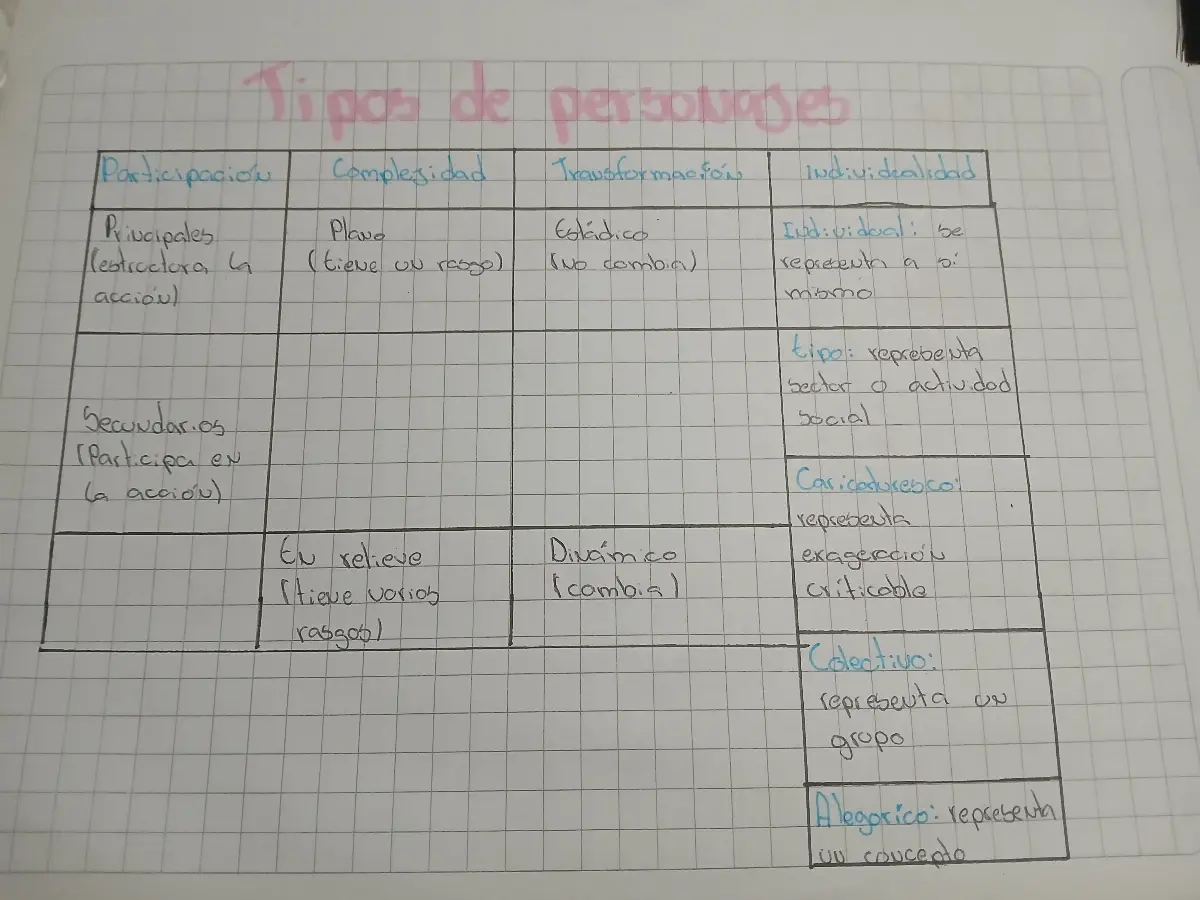 Tipos de personages
Participación
Complejidad
Transformación
Individualidad
Principales
(estructura la
acción)
Plano
(tiene un rasgo)
Estádico
(No cambia)
Individual: se
representa a si
mismo
tipo: representa
sector o actividad
social
Secundarios
(Participa en
la acción)
Caricaduresco:
representa
exageración
críticable
En relieve
(tiene varios
rasgos)
Dinámico
(cambia)
Colectivo:
representa un
grupo
Alegorico: representa
un concepto